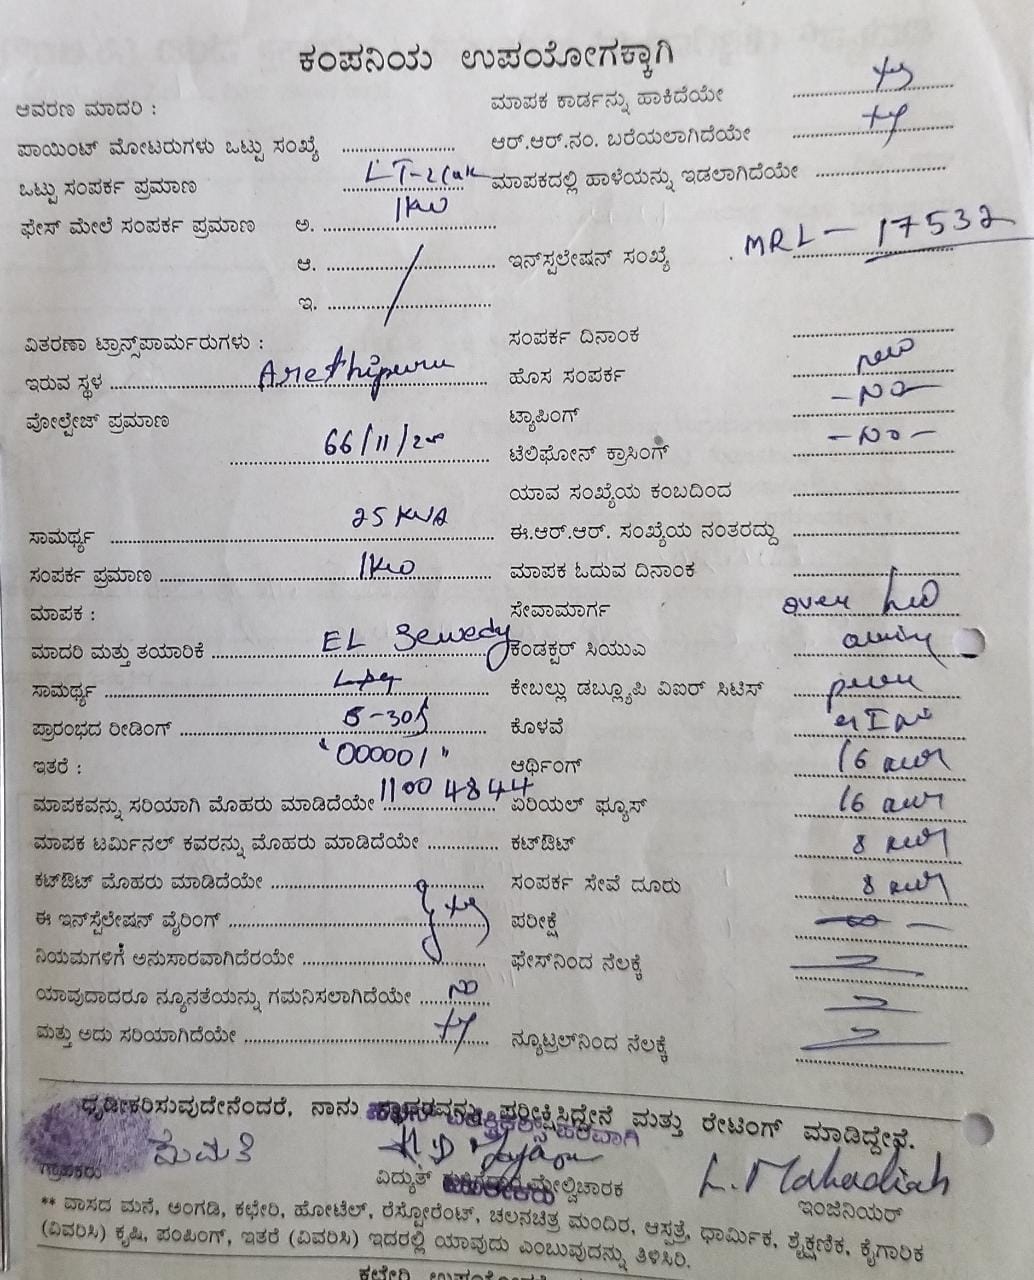 ಕಂಪನಿಯ ಉಪಯೋಗಕ್ಕಾಗಿ
ಆವರಣ ಮಾದರಿ :
ಮಾಪಕ ಕಾರ್ಡನ್ನು ಹಾಕಿದೆಯೇ
ಪಾಯಿಂಟ್ ಮೋಟರುಗಳು ಒಟ್ಟು ಸಂಖ್ಯೆ
ಆರ್.ಆರ್.ನಂ. ಬರೆಯಲಾಗಿದೆಯೇ
ಒಟ್ಟು ಸಂಪರ್ಕ ಪ್ರಮಾಣ
ಮಾಪಕದಲ್ಲಿ ಹಾಳೆಯನ್ನು ಇಡಲಾಗಿದೆಯೇ
ಫೇಸ್ ಮೇಲೆ ಸಂಪರ್ಕ ಪ್ರಮಾಣ ಅ. 1KW
ಆ.
ಇನ್‌ಸ್ಪಲೇಷನ್ ಸಂಖ್ಯೆ MRL - 17532
ಇ.
ವಿತರಣಾ ಟ್ರಾನ್ಸ್‌ಪಾರ್ಮರುಗಳು :
ಸಂಪರ್ಕ ದಿನಾಂಕ
ಇರುವ ಸ್ಥಳ Arethipura
ಹೊಸ ಸಂಪರ್ಕ new
ವೋಲ್ಟೇಜ್ ಪ್ರಮಾಣ 66/11/
ಟ್ಯಾಪಿಂಗ್ - NO -
ಟೆಲಿಫೋನ್ ಕ್ರಾಸಿಂಗ್ - NO -
ಯಾವ ಸಂಖ್ಯೆಯ ಕಂಬದಿಂದ
ಸಾಮರ್ಥ್ಯ 25 KVA
ಈ.ಆರ್.ಆರ್. ಸಂಖ್ಯೆಯ ನಂತರದ್ದು
ಸಂಪರ್ಕ ಪ್ರಮಾಣ 1KW
ಮಾಪಕ ಓದುವ ದಿನಾಂಕ
ಮಾಪಕ :
ಸೇವಾಮಾರ್ಗ over
ಮಾದರಿ ಮತ್ತು ತಯಾರಿಕೆ EL Sewedy
ಕಂಡಕ್ಟರ್ ಸಿಯುಎ
ಸಾಮರ್ಥ್ಯ
ಕೇಬಲ್ಲು ಡಬ್ಲ್ಯೂಪಿ ವಿಐರ್ ಸಿಟಿಸ್
ಪ್ರಾರಂಭದ ರೀಡಿಂಗ್ 5-30A
ಕೊಳವೆ
ಇತರೆ : "000001"
ಆರ್ಥಿಂಗ್ 16
ಮಾಪಕವನ್ನು ಸರಿಯಾಗಿ ಮೊಹರು ಮಾಡಿದೆಯೇ 11004844
ಏರಿಯಲ್ ಫ್ಯೂಸ್ 16
ಮಾಪಕ ಟರ್ಮಿನಲ್ ಕವರನ್ನು ಮೊಹರು ಮಾಡಿದೆಯೇ
ಕಟ್‌ಔಟ್ 8
ಕಟ್‌ಔಟ್ ಮೊಹರು ಮಾಡಿದೆಯೇ
ಸಂಪರ್ಕ ಸೇವೆ ದೂರು 8
ಈ ಇನ್‌ಸ್ಪೆಲೇಷನ್ ವೈರಿಂಗ್
ಪರೀಕ್ಷೆ
ನಿಯಮಗಳಿಗೆ ಅನುಸಾರವಾಗಿದೆರಯೇ
ಫೇಸ್‌ನಿಂದ ನೆಲಕ್ಕೆ
ಯಾವುದಾದರೂ ನ್ಯೂನತೆಯನ್ನು ಗಮನಿಸಲಾಗಿದೆಯೇ NO
ಮತ್ತು ಅದು ಸರಿಯಾಗಿದೆಯೇ
ನ್ಯೂಟ್ರಲ್‌ನಿಂದ ನೆಲಕ್ಕೆ
ಧೃಡೀಕರಿಸುವುದೇನೆಂದರೆ, ನಾನು ಸ್ಥಾವರವನ್ನು ಪರೀಕ್ಷಿಸಿದ್ದೇನೆ ಮತ್ತು ರೇಟಿಂಗ್ ಮಾಡಿದ್ದೇವೆ.
L. Mahadiah
ಗ್ರಾಹಕರು
ವಿದ್ಯುತ್ ಮೇಲ್ವಿಚಾರಕ
ಇಂಜಿನಿಯರ್
** ವಾಸದ ಮನೆ, ಅಂಗಡಿ, ಕಛೇರಿ, ಹೋಟೆಲ್, ರೆಸ್ಟೋರೆಂಟ್, ಚಲನಚಿತ್ರ ಮಂದಿರ, ಆಸ್ಪತ್ರೆ, ಧಾರ್ಮಿಕ, ಶೈಕ್ಷಣಿಕ, ಕೈಗಾರಿಕ
(ವಿವರಿಸಿ) ಕೃಷಿ, ಪಂಪಿಂಗ್, ಇತರೆ (ವಿವರಿಸಿ) ಇದರಲ್ಲಿ ಯಾವುದು ಎಂಬುವುದನ್ನು ತಿಳಿಸಿರಿ.